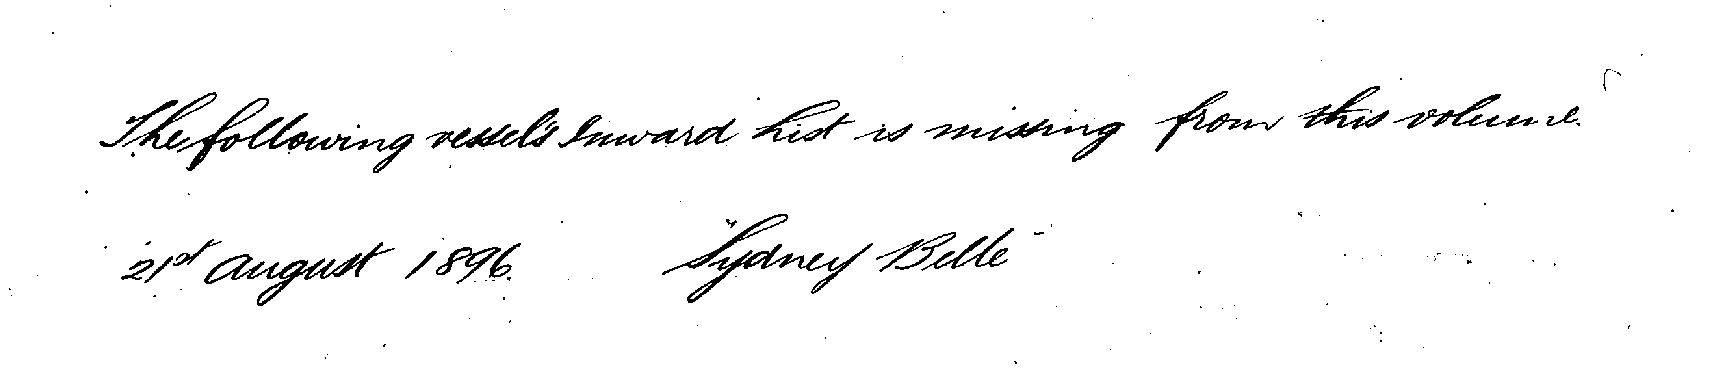 The following vessel's Inward List is missing from this volume.
21st August 1896. "Sydney Belle"